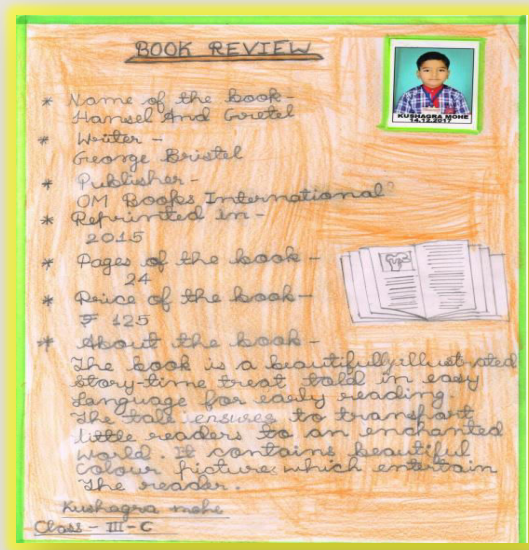 BOOK REVIEW
KUSHAGRA MOHE
14.12.2017
* Name of the book-
Hansel And Gretel
* Writer -
George Bristel
* Publisher-
OM Books International
* Reprinted in-
2015
* Pages of the book-
24
* Price of the book-
₹ 125
* About the book-
The book is a beautifully illustrated
story-time treat told in easy
language for early reading.
The tale ensures to transport
little readers to an enchanted
world. It contains beautiful
colour picture which entertain
the reader.
Kushagra mohe
Class - III - C